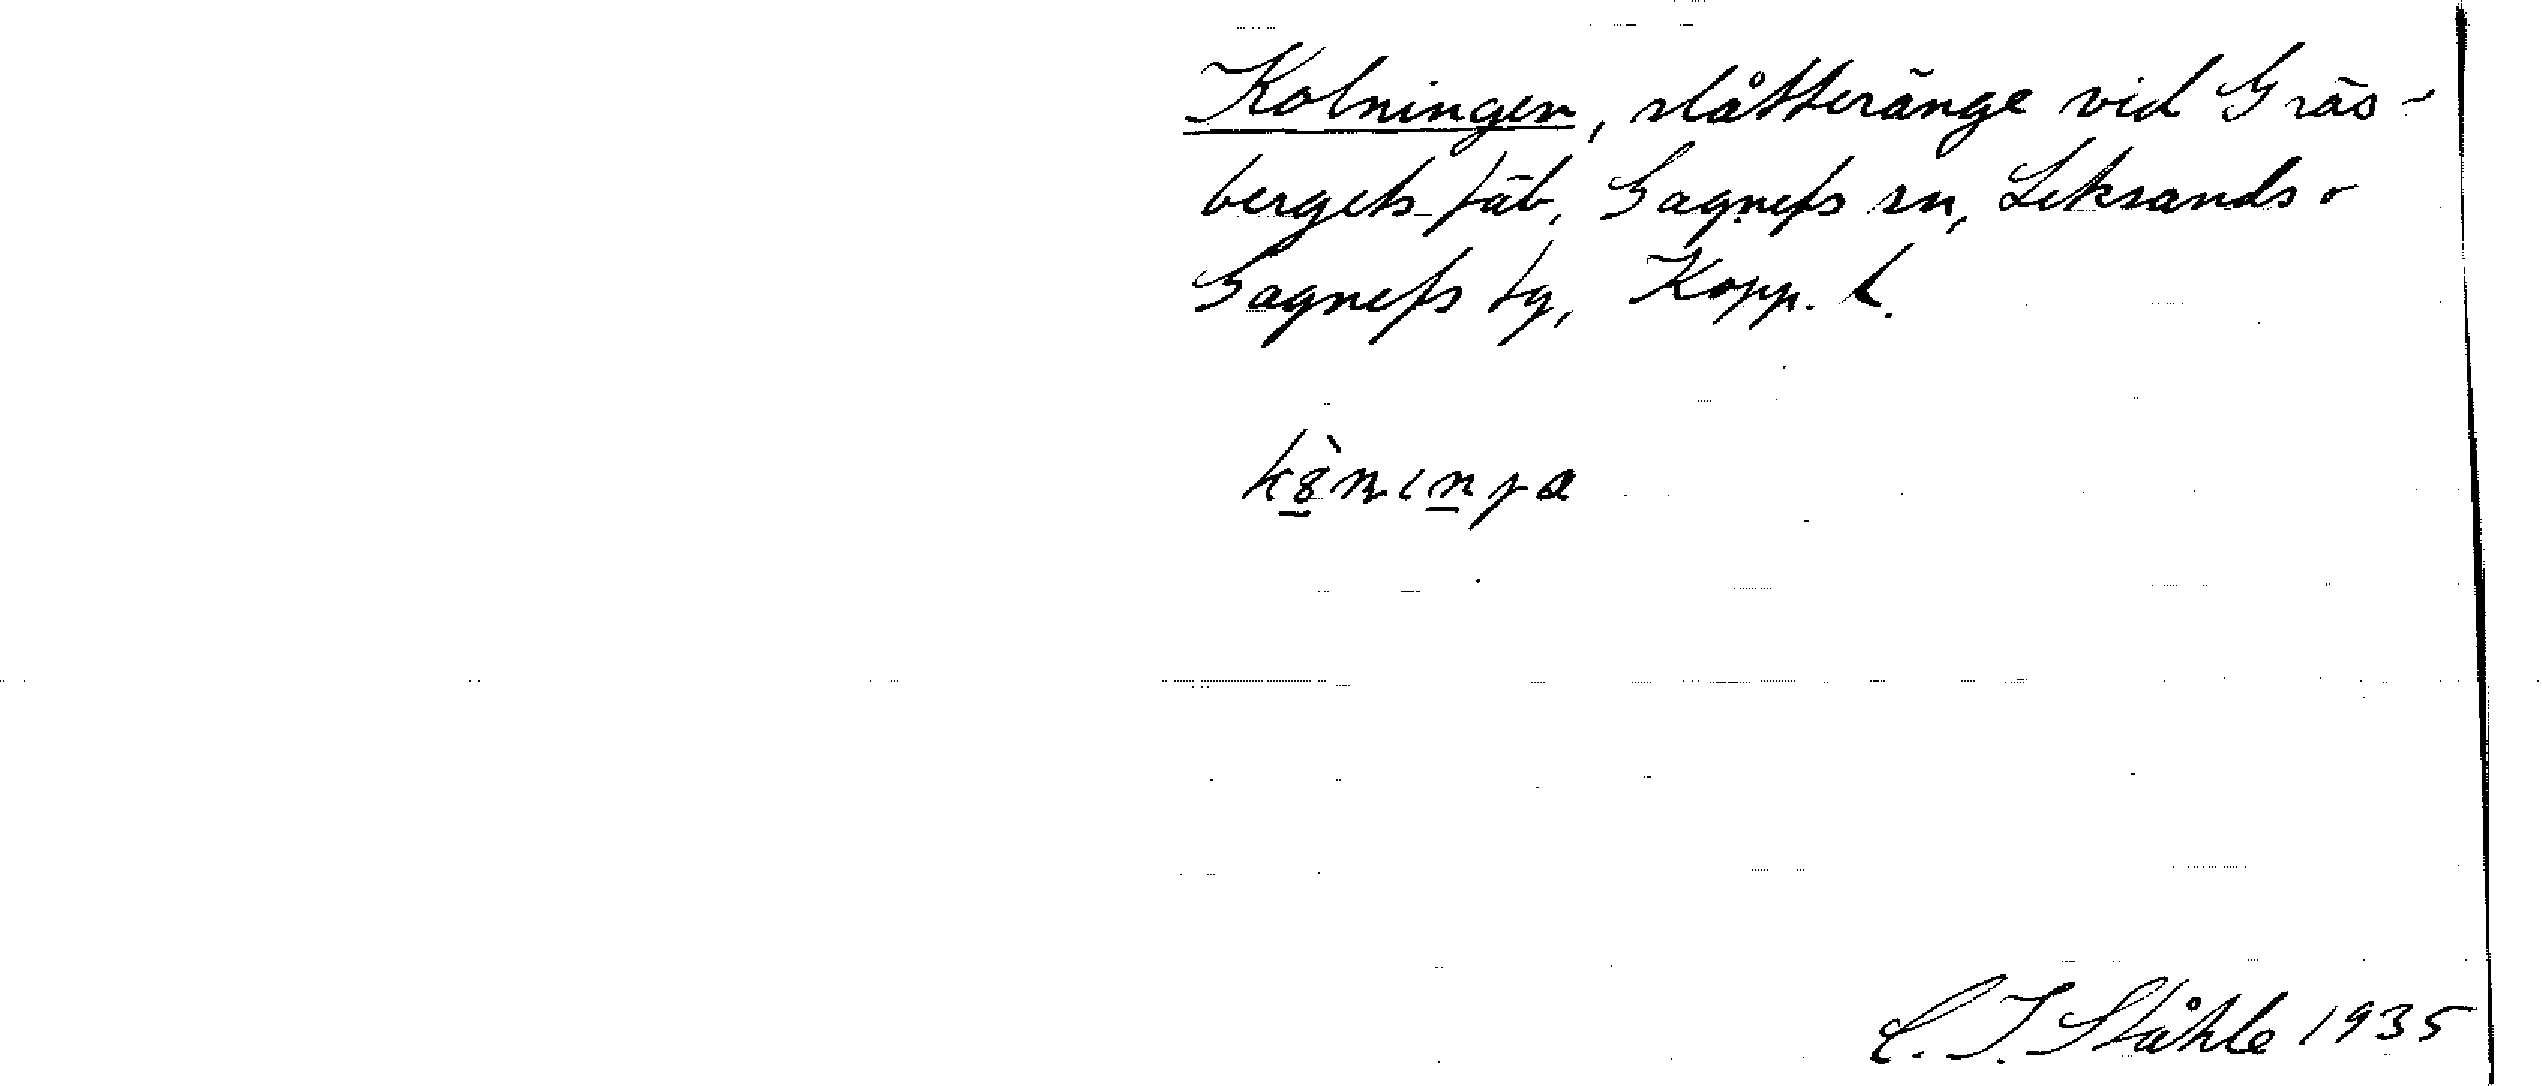 Kolningen, slåtteränge vid Gräs-
bergets fäb, Gagnefs sn, Leksands o
Gagnefs tg, Kopp. l.
C. I. Ståhle 1935